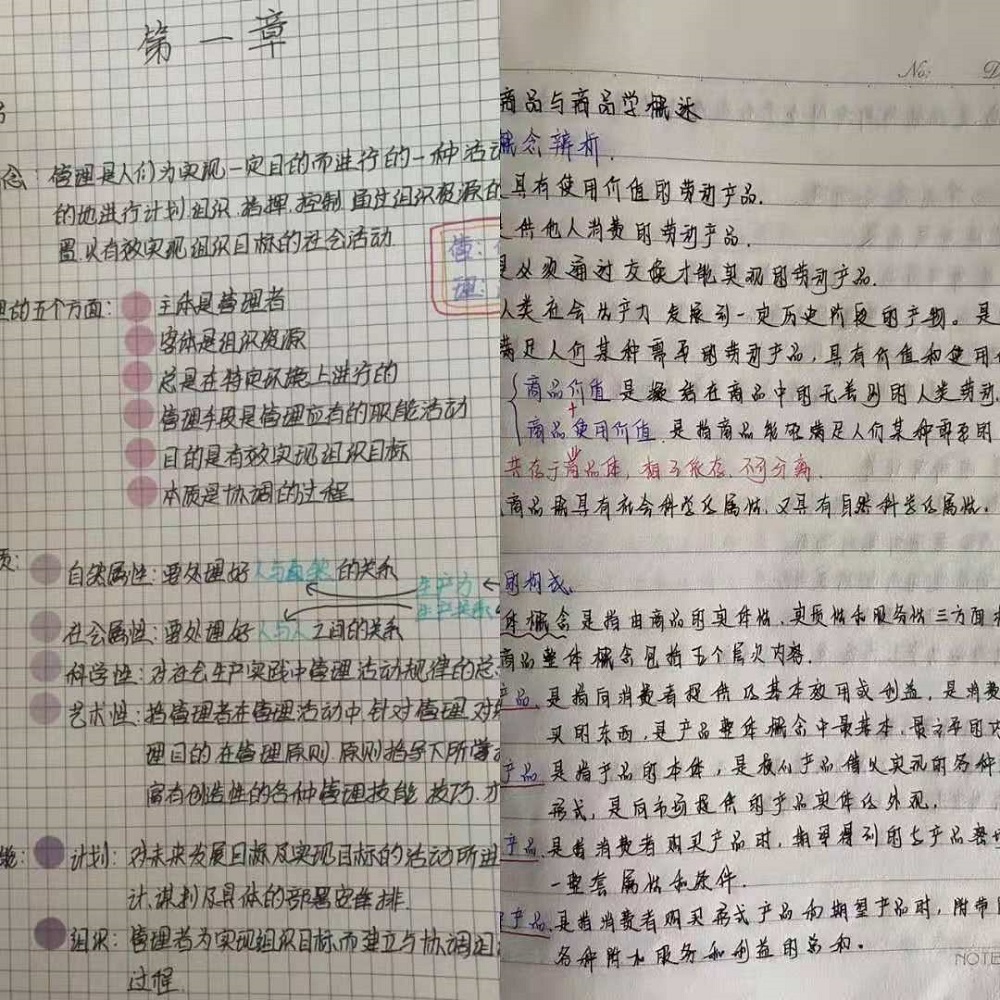 第一章
念：管理是人们为实现一定目的而进行的一种活动
的地进行计划.组织.指挥.控制.通过组织资源的
置.以有效实现组织目标的社会活动.
管：
理：
理的五个方面：
主体是管理者
客体是组织资源
总是在特定环境上进行的
管理手段是管理应有的职能活动
目的是有效实现组织目标
本质是协调的过程
质：
自然属性：要处理好人与自然的关系
生产力
生产关系
社会属性：要处理好人与人之间的关系
科学性：对社会生产实践中管理活动规律的总
艺术性：指管理者在管理活动中.针对管理.对
理目的在管理原则.原则指导下所学
富有创造性的各种管理技能.技巧.才
计划：对未来发展目标及实现目标的活动所进
计.谋划及具体的部署安排.
组织：管理者为实现组织目标而建立与协调组
过程.
No:
商品与商品学概述
概念辨析.
具有使用价值的劳动产品.
供他人消费的劳动产品.
是必须通过交换才能实现的劳动产品.
人类社会生产力发展到一定历史阶段的产物。是
满足人们某种需要的劳动产品，具有价值和使用价
商品价值 是凝结在商品中的无差别的人类劳动.
+
商品使用价值.是指商品能够满足人们某种需要的
共存于商品体，相互依存.不可分离.
商品既具有社会科学的属性.又具有自然科学的属性。
的构成.
体概念是指由商品的实体性.实质性和服务性三方面
商品整体概念包括五个层次内容.
产品.是指向消费者提供的基本效用或利益，是消费
买的东西，是产品整体概念中最基本.最主要的内
产品 是指产品的本体，是核心产品借以实现的各种
形式，是向市场提供的产品实体的外观.
产品.是指消费者购买产品时，期望得到的与产品密切
一整套属性和条件.
产品.是指消费者购买形式产品和期望产品时，附带
各种附加服务和利益的总和。
NOTE